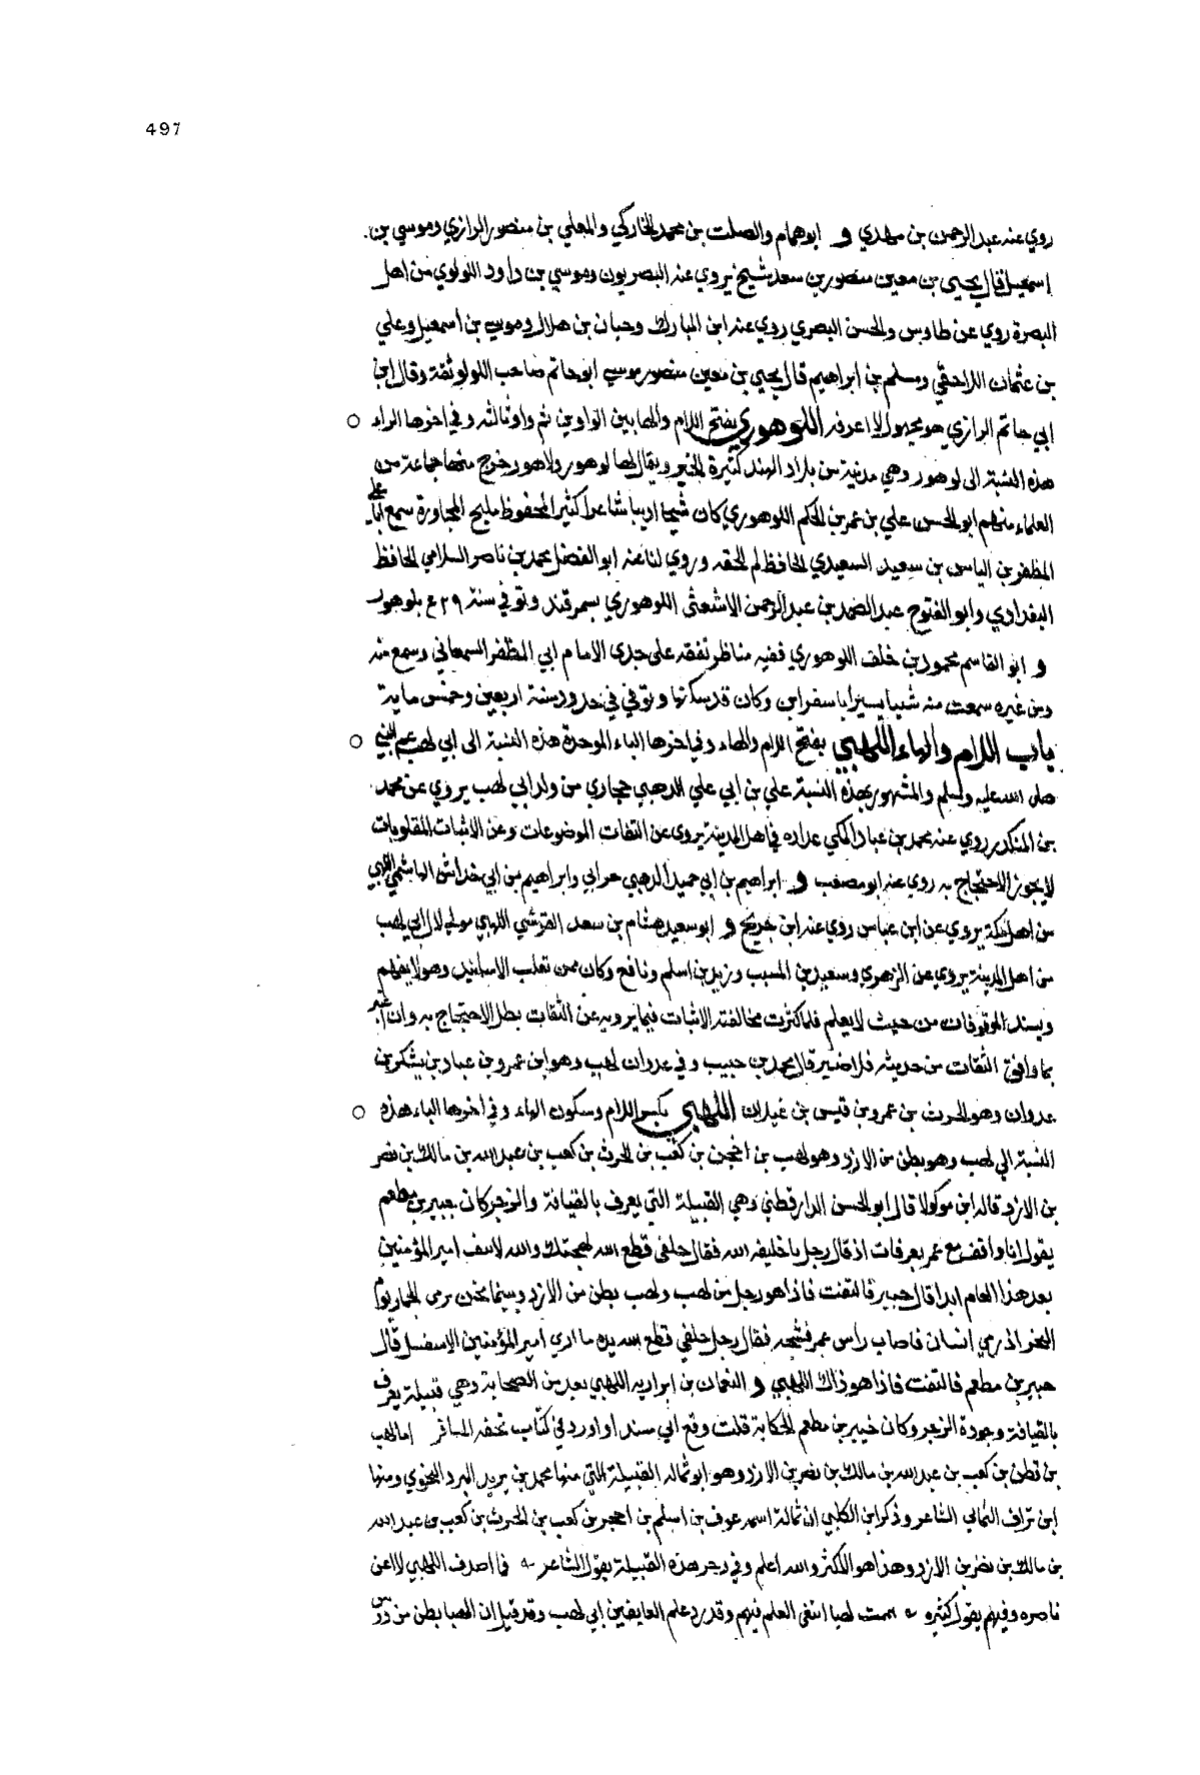 497
روي عنه عبد الرحمن بن مهدي و ابو همام والصلت بن محمد الخاركي والمعلي بن منصور الرازي وموسي بن
اسمعيل قال يحيى بن معين منصور بن سعد شيخ يروي عنه البصريون وموسي بن داود اللولوي من اهل
البصرة روي عن طاوس والحسن البصري روي عنه ابن المبارك وحبان بن هلال وموسي بن اسمعيل وعلي
بن عثمان اللاحقي ومسلم بن ابراهيم قال يحيي بن معين منصور موسي ابو حاتم صاحب اللولو ثقة وقال ابن
ابي حاتم الرازي هو مجهول لا اعرفه اللوهوري بفتح اللام والهاء بين الواوين ثم واو ثالثه وفي اخرها الراء
هذه النسبة الى لوهور وهي مدينة من بلاد الهند كثيرة الخير ويقال لها لوهور ولاهور خرج منها جماعة من
العلماء منهم ابو الحسن علي بن عمر بن الحكم اللوهوري كان شيخا اديبا شاعرا كثير المحفوظ مليح المجاورة سمع ابا علي
المظفر بن الياس بن سعيد السعيدي الحافظ لم الحقه وروي لنا عنه ابو الفضل محمد بن ناصر السلامي الحافظ
البغدادي وابو الفتوح عبد الصمد بن عبد الرحمن الاشعثي اللوهوري بسمرقند وتوفي سنة ٤٢٩ بلوهور
و ابو القاسم محمود بن خلف اللوهوري فقيه مناظر تفقه على جدي الامام ابي المظفر السمعاني وسمع منه
ومن غيره سمعت منه شيا يسيرا باسفراين وكان قد سكنها وتوفي في حدود سنة اربعين وخمس ماية
باب اللام والهاء اللهبي بفتح اللام والهاء وفي اخرها الباء الموحدة هذه النسبة الى ابي لهب عم النبي
صلى الله عليه وسلم والمشهور بهذه النسبة علي بن ابي علي اللهبي حجازي من ولد ابي لهب يروي عن محمد
بن المنكدر روي عنه محمد بن عباد المكي عداده في اهل المدينة يروى عن الثقات الموضوعات وعن الاثبات المقلوبات
لا يجوز الاحتجاج به روي عنه ابو مصعب و ابراهيم بن ابي حميد اللهبي حراني وابراهيم بن ابي خداش الهاشمي اللهبي
من اهل مكة يروي عن ابن عباس روي عنه ابن جريج و ابو سعيد هشام بن سعد القرشي اللهبي مولى لال ابي لهب
من اهل المدينة يروي عن الزهري وسعيد بن المسيب وزيد بن اسلم ونافع وكان ممن تقلب الاسانيد وهو لا يفهم
ويسند الموقوفات من حيث لا يعلم فلما كثرت مخالفته الاثبات فيما يرويه عن الثقات بطل الاحتجاج به وان اعتبر
بما وافق الثقات من حديثه فلا ضير قال محمد بن حبيب وفي عدوان لهب وهو ابن عمرو بن عباد بن يشكر بن
عدوان وهو الحرث بن عمرو بن قيس بن عيلان اللهبي بكسر اللام وسكون الهاء وفي اخرها الباء هذه
النسبة الي لهب وهو بطن من الازد وهو لهب بن احجن بن كعب بن الحرث بن كعب بن عبد الله بن مالك بن نصر
بن الازد قاله ابن ماكولا قال ابو الحسن الدارقطني وهي القبيلة التي يعرف بالقيافة والزجر كان جبير بن مطعم
يقول انا واقف مع عمر بعرفات اذ قال رجل يا خليفه الله فقال خلفي قطع الله لهجتك والله لا يقف امير المؤمنين
بعد هذا العام ابدا قال جبير فالتفت فاذا هو رجل من لهب ولهب بطن من الازد وبينما نحن نرمي الجمار يوم
النحر اذ رمي انسان فاصاب راس عمر فشجه فقال رجل خلفي قطع الله يده ما اري امير المؤمنين الا سيقتل قال
جبير بن مطعم فالتفت فاذا هو ذاك اللهبي و النعمان بن الرازيه اللهبي يعد من الصحابة وهي قبيلة يعرف
بالقيافة وجودة الزجر وكان جبير بن مطعم الحكاية قلت وقع ابي مسندا واورد في كتاب تحفه المسافر اما لهب
بن قطن بن كعب بن عبد الله بن مالك بن نصر بن الازد وهو ابو ثماله القبيلة التي منها محمد بن يزيد المبرد النحوي ومنها
ابن تراف الثمالي الشاعر وذكر ابن الكلبي ان ثمالة اسمه عوف بن اسلم بن احجر بن كعب بن الحرث بن كعب بن عبد الله
بن مالك بن نصر بن الازد وهذا هو الاكثر والله اعلم وفي زجر هذه القبيلة يقول الشاعر فما اصدف اللهبي لا اعن
ناصره وفيهم يقول كثير تيممت لهبا ابتغى العلم فيهم وقد رد علم العايفين ابي لهب وقد قيل ان لهبا بطن من دوس